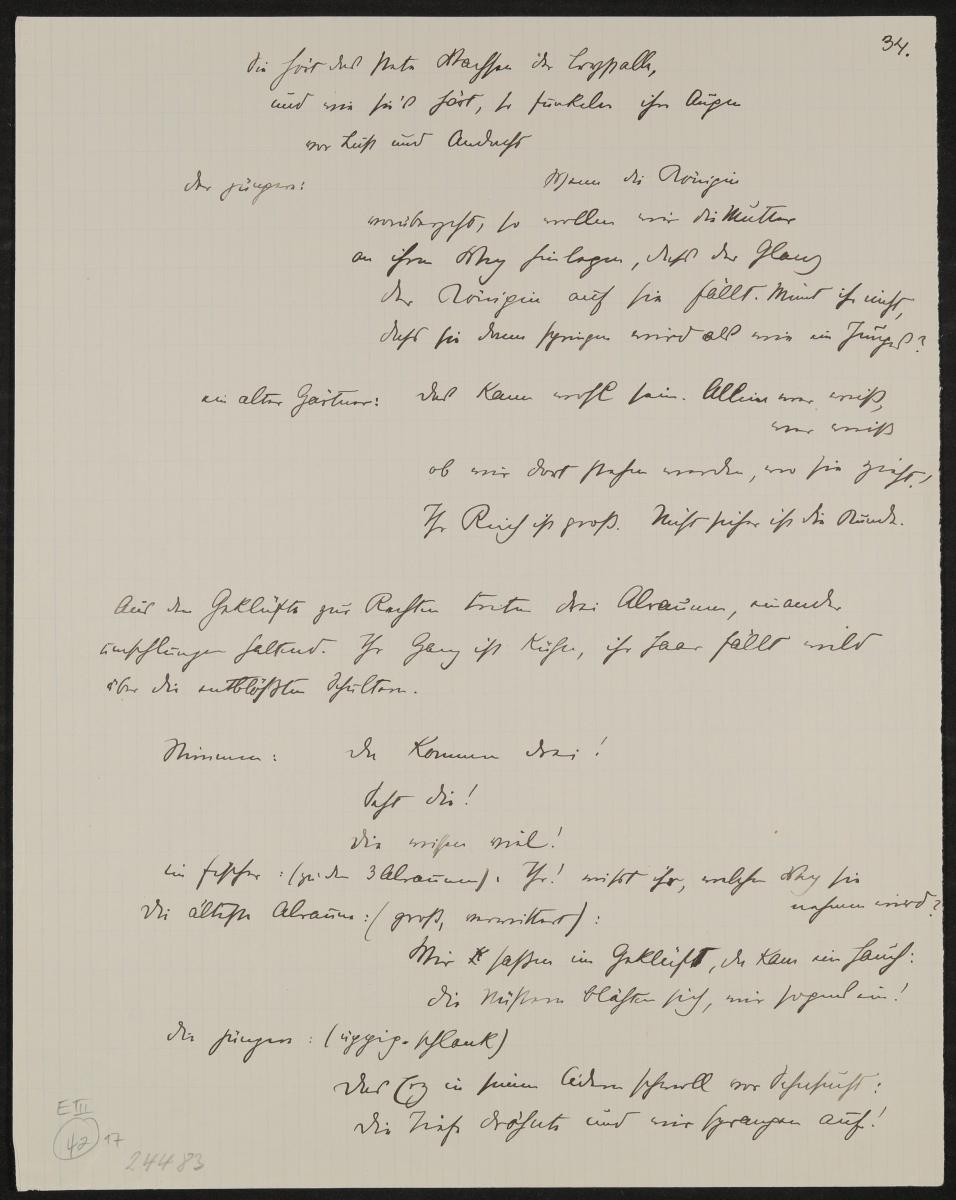 34.
Sie hört das stete Wachsen der Crystalle,
und wie sie's hört, so funkeln ihre Augen
vor Lust und Andacht
der jüngere: Wenn die Königin
vorübergeht, so wollen wir die Mutter
an ihren Weg hinlegen, daß der Glanz
der Königin auf sie fällt. Meint ihr nicht,
daß sie dann springen wird als wie ein Junges?
ein alter Gärtner: das kann wohl sein. Allein wer weiß,
wer weiß
ob wir dort stehen werden, wo sie zieht!
Ihr Reich ist groß. Nicht sicher ist die Kunde.
Aus dem Geklüfte zur Rechten treten drei Alraunen, einander
umschlungen haltend. Ihr Gang ist kühn, ihr Haar fällt wild
über die entblößten Schultern.
Stimmen: da kommen drei!
Seht die!
Die wissen viel!
ein Fischer: (zu den 3 Alraunen): Ihr! wißt ihr, welchen Weg sie
nehmen wird?
Die älteste Alraune: (groß, verwittert):
Wir saßen im Geklüft, da kam ein Hauch:
die Nüstern blähten sich, wir sogens ein!
die jüngere: (üppig-schlank)
das Erz in seinen Adern schwoll vor Sehnsucht:
die Tiefe dröhnte und wir sprangen auf!
E III
42 17
24483